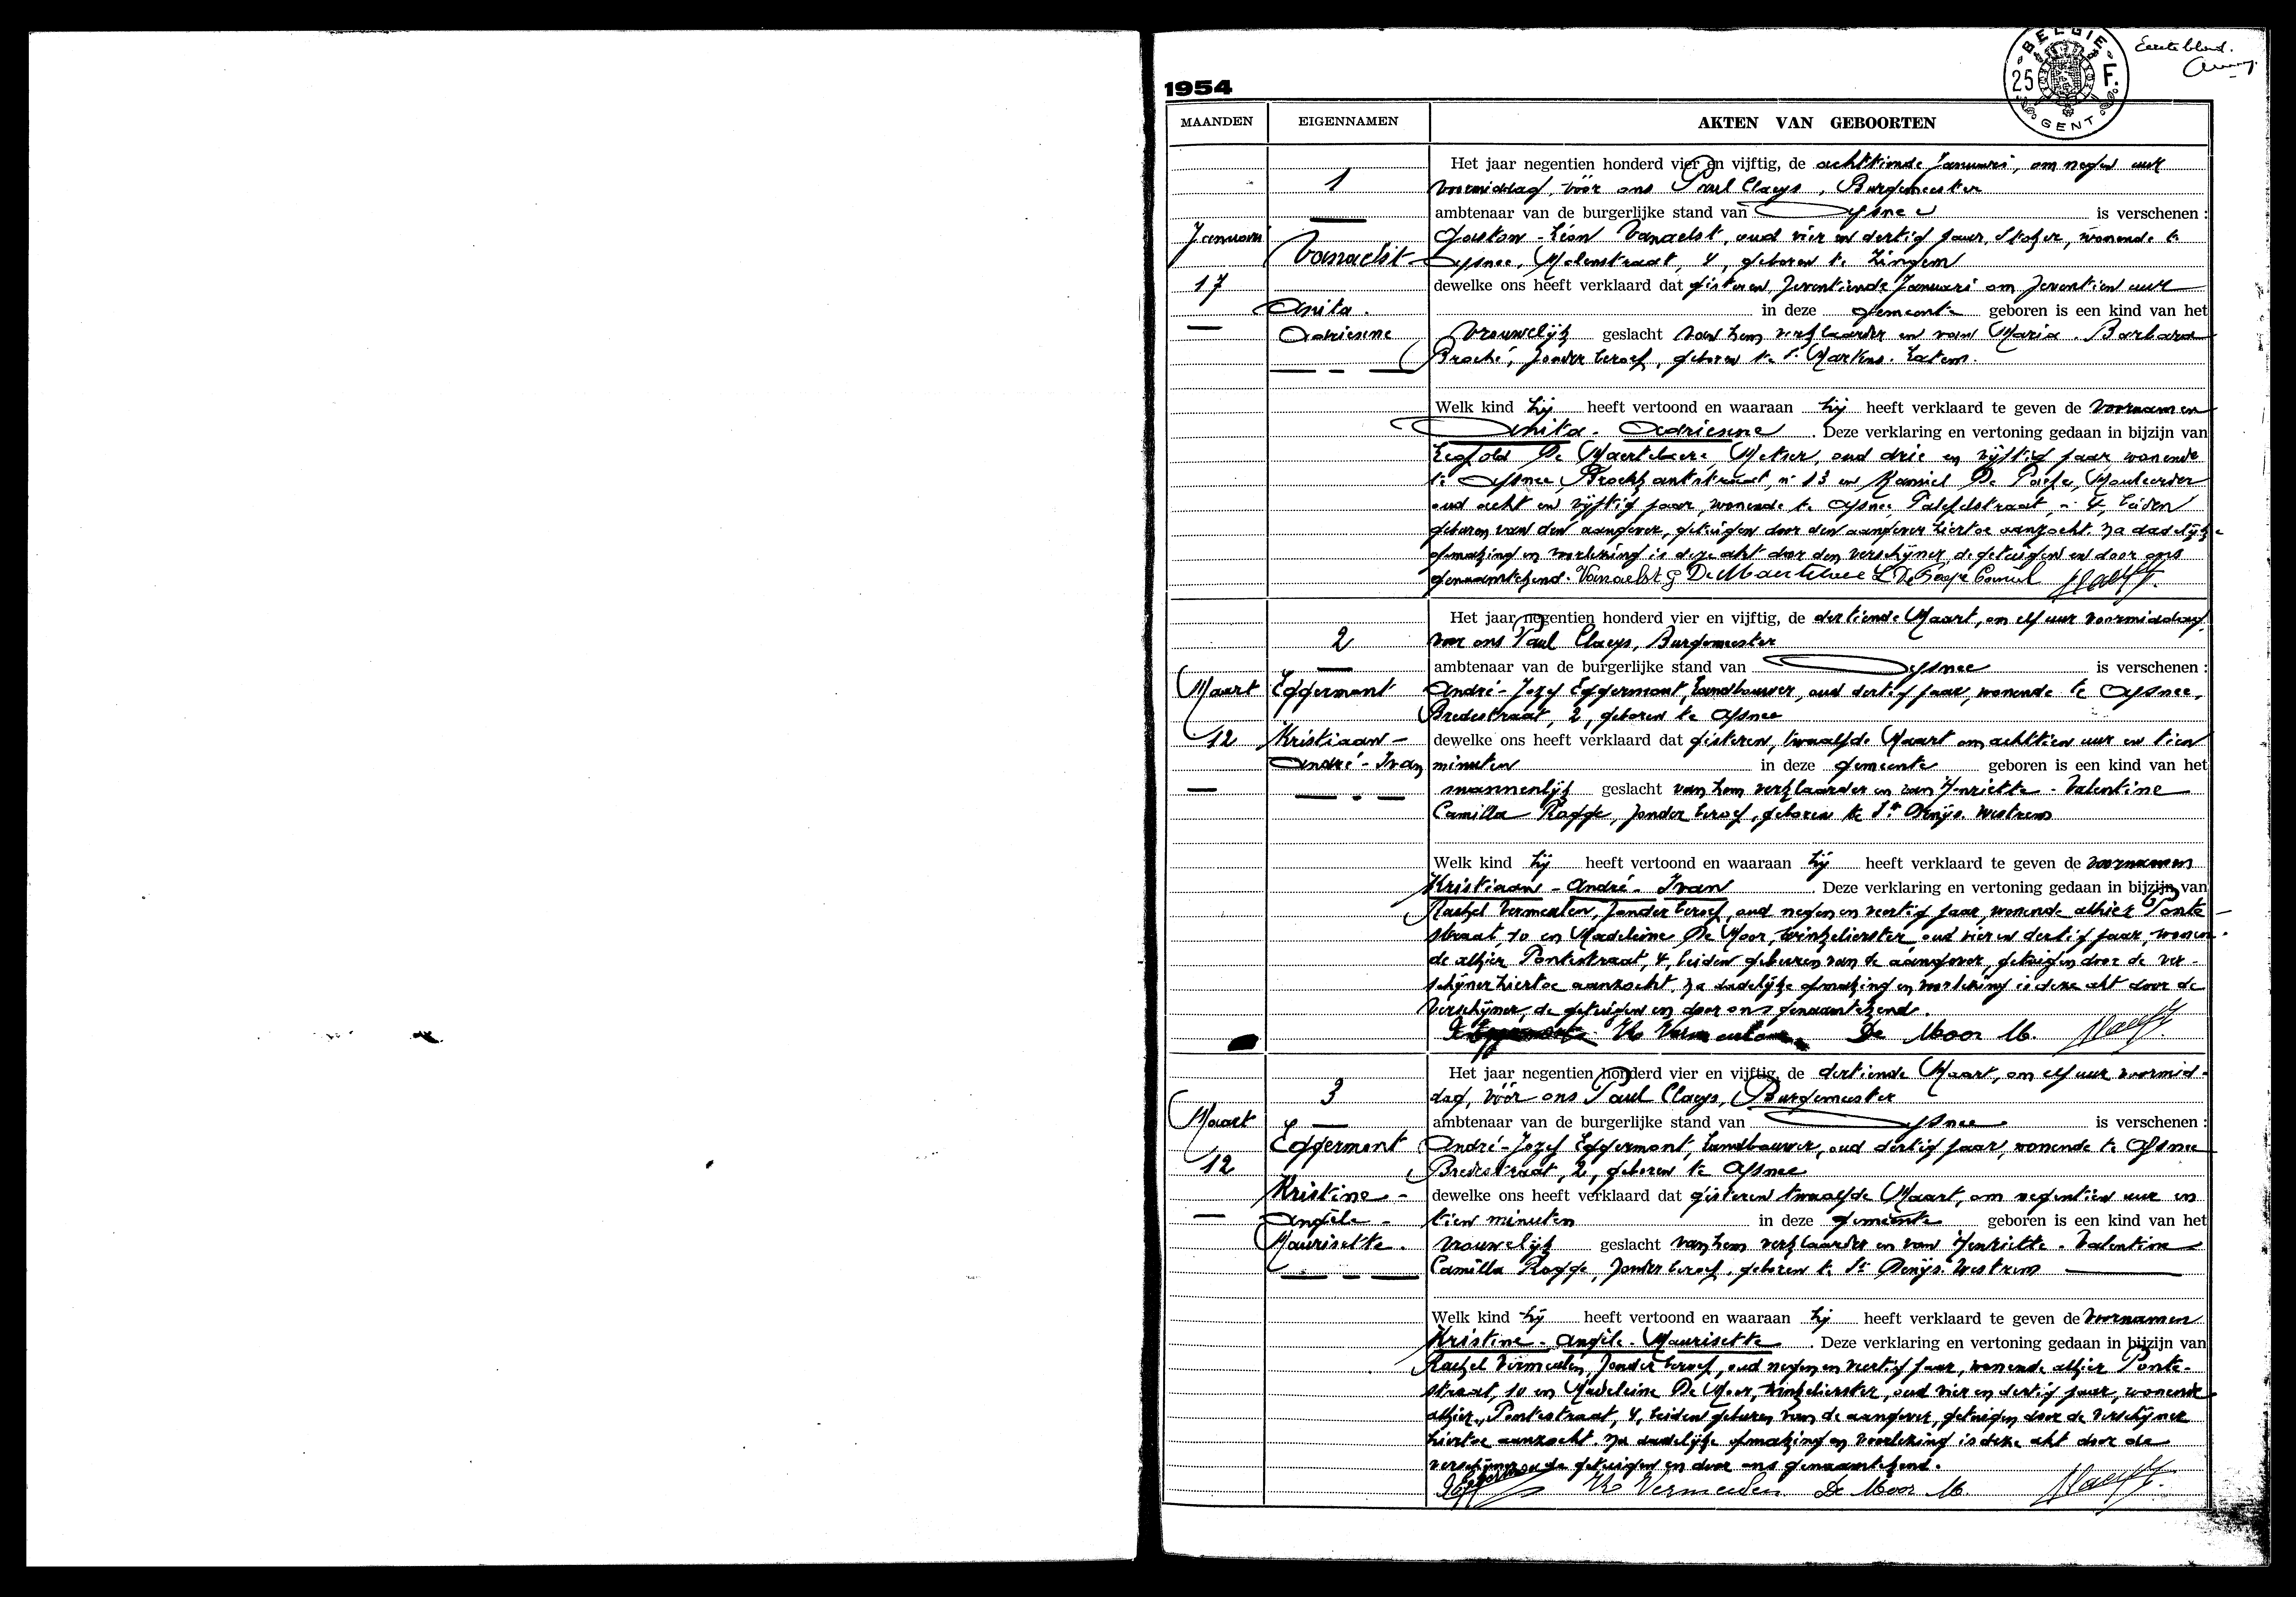 Eerste blad.
BELGIE
25 F.
GENT
1954
MAANDEN EIGENNAMEN AKTEN VAN GEBOORTEN
Het jaar negentien honderd vier en vijftig, de achttiende Januari, om negen uur
1 voormiddag, vóór ons Paul Claeys, Burgemeester
ambtenaar van de burgerlijke stand van Afsnee is verschenen :
Januari Gaston-Léon Vanaelst, oud vier en dertig jaar, Stoker, wonende te
Vanaelst Afsnee, Molenstraat, 4, geboren te Zingem
17 dewelke ons heeft verklaard dat gisteren, zeventiende Januari om zeventien uur
Anita. in deze gemeente geboren is een kind van het
Adrienne vrouwelijk geslacht van hem verklaarder en van Maria. Barbara
Broché, zonder beroep, geboren te St Martens. Latem.
Welk kind hij heeft vertoond en waaraan hij heeft verklaard te geven de voornamen
Anita. Adrienne. Deze verklaring en vertoning gedaan in bijzijn van
Leopold De Maertelaere, Metser, oud drie en vijftig jaar, wonende
te Afsnee, Broekkantstraat, nr 13 en Kamiel De Paepe,
oud acht en vijftig jaar, wonende te Afsnee, 4, beiden
geburen van den aangever, getuigen door den aangever hiertoe aanzocht. Na dadelijke
opmaking en voorlezing is deze akt door den verschijner, de getuigen en door ons
genaamtekend. Vanaelst G De Maertelaere L De Paepe Camiel Claeys
Het jaar negentien honderd vier en vijftig, de dertiende Maart, om elf uur voormiddag
2 voor ons Paul Claeys, Burgemeester
ambtenaar van de burgerlijke stand van Afsnee is verschenen :
Maart Eggermont André-Jozef Eggermont, Landbouwer, oud dertig jaar, wonende te Afsnee,
Bredestraat, 2, geboren te Afsnee
12 Kristiaan- dewelke ons heeft verklaard dat gisteren, twaalfde Maart om achttien uur en tien
André-Ivan minuten in deze gemeente geboren is een kind van het
mannenlijk geslacht van hem verklaarder en van Henriette. Valentine
Camilla Rogge, zonder beroep, geboren te St Denijs. Westrem
Welk kind hij heeft vertoond en waaraan hij heeft verklaard te geven de voornamen
Kristiaan-André-Ivan. Deze verklaring en vertoning gedaan in bijzijn van
Rachel Vermeulen, zonder beroep, oud negen en veertig jaar, wonende alhier Ponte-
straat, 10 en Madeleine De Moor, winkelierster, oud vier en dertig jaar, wonen-
de alhier Pontestraat, 4, beiden geburen van de aangever, getuigen door de ver-
schijner hiertoe aanzocht. Na dadelijke opmaking en voorlezing is deze akt door de
verschijner, de getuigen en door ons genaamtekend.
Vermeulen De Moor M. Claeys
Het jaar negentien honderd vier en vijftig, de dertiende Maart, om elf uur voormid-
3 dag, vóór ons Paul Claeys, Burgemeester
Maart ambtenaar van de burgerlijke stand van Afsnee is verschenen :
Eggermont André-Jozef Eggermont, Landbouwer, oud dertig jaar, wonende te Afsnee
12 Bredestraat, 2, geboren te Afsnee
Kristine- dewelke ons heeft verklaard dat gisteren twaalfde Maart, om negentien uur en
Angèle- tien minuten in deze gemeente geboren is een kind van het
Maurisette. vrouwelijk geslacht van hem verklaarder en van Henriette. Valentine
Camilla Rogge, zonder beroep, geboren te St Denijs. Westrem
Welk kind hij heeft vertoond en waaraan hij heeft verklaard te geven de voornamen
Kristine-Angèle-Maurisette. Deze verklaring en vertoning gedaan in bijzijn van
Rachel Vermeulen, zonder beroep, oud negen en veertig jaar, wonende alhier Ponte-
straat, 10 en Madeleine De Moor, winkelierster, oud vier en dertig jaar, wonende
alhier, Pontestraat, 4, beiden geburen van de aangever, getuigen door de verschijner
hiertoe aanzocht. Na dadelijke opmaking en voorlezing is deze akt door de
verschijner de getuigen en door ons genaamtekend.
Vermeulen De Moor M. Claeys